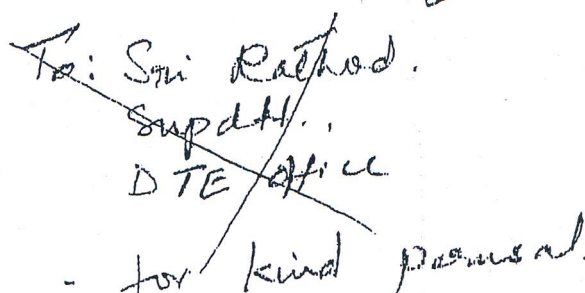 To: Sri Rathod.
Supdtt..
DTE Office
- for kind perusal.